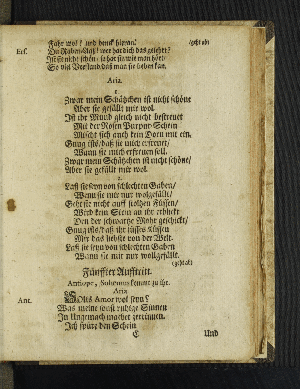 Fahr wol! und denk hieran!
(geht ab)
Erf. Du Rabenklaß! wer hat dich das gelehrt?
Ist sie nicht schön/ so hat sie wie man hört/
So viel Verstand/daß man sie lieben kan.
Aria.
1
Zwar mein Schätzchen ist nicht schöne
Aber sie gefällt mir wol.
Ist ihr Mund gleich nicht bestreuet
Mit der Rosen Purpur-Schein
Mischt sich auch kein Dorn mit ein.
Gnug ists/ daß sie mich erfreuet/
Wann sie mich erfreuen soll.
Zwar mein Schätzchen ist nicht schöne/
Aber sie gefällt mir wol.
2.
Laß sie seyn von schlechten Gaben/
Wenn sie mir nur wolgefällt/
Geht sie nicht auff stolzen Füssen/
Wird kein Stein an ihr erblickt
Den der schwartze Mohr geschickt/
Gnug ists/daß ihr süsses Küssen
Mir das liebste von der Welt.
Laß sie seyn von schlechten Gaben
Wann sie mir nur wolgefällt.
(geht ab
Fünffter Aufftritt.
Antiope, kommt zu ihr.
Aria
Ant. Amor wol seyn?
Was meine sonst ruhige Sinnen
In Ungemach machet zerrinnen.
Ich spüre den Schein
C
Und